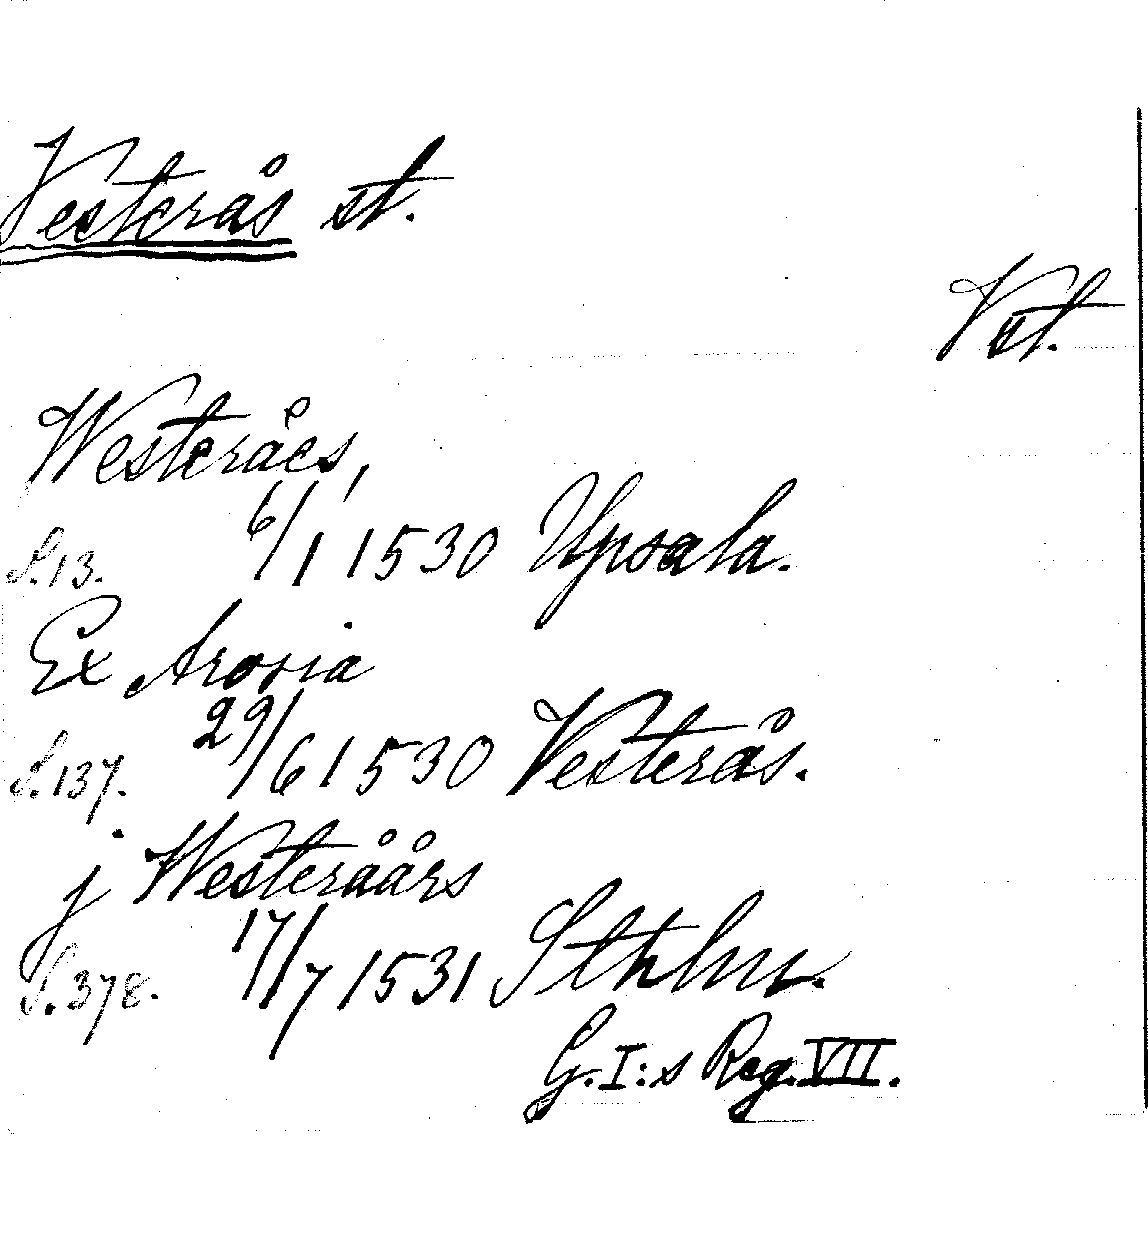 Vesterås st.
Vst.
Westeråes,
S.13. 6/1 1530 Upsala.
Ex Arosia
S.137. 29/6 1530 Vesterås.
j Westeråårs
S.378. 17/7 1531 Sthlm.
G.I:s Reg.VII.